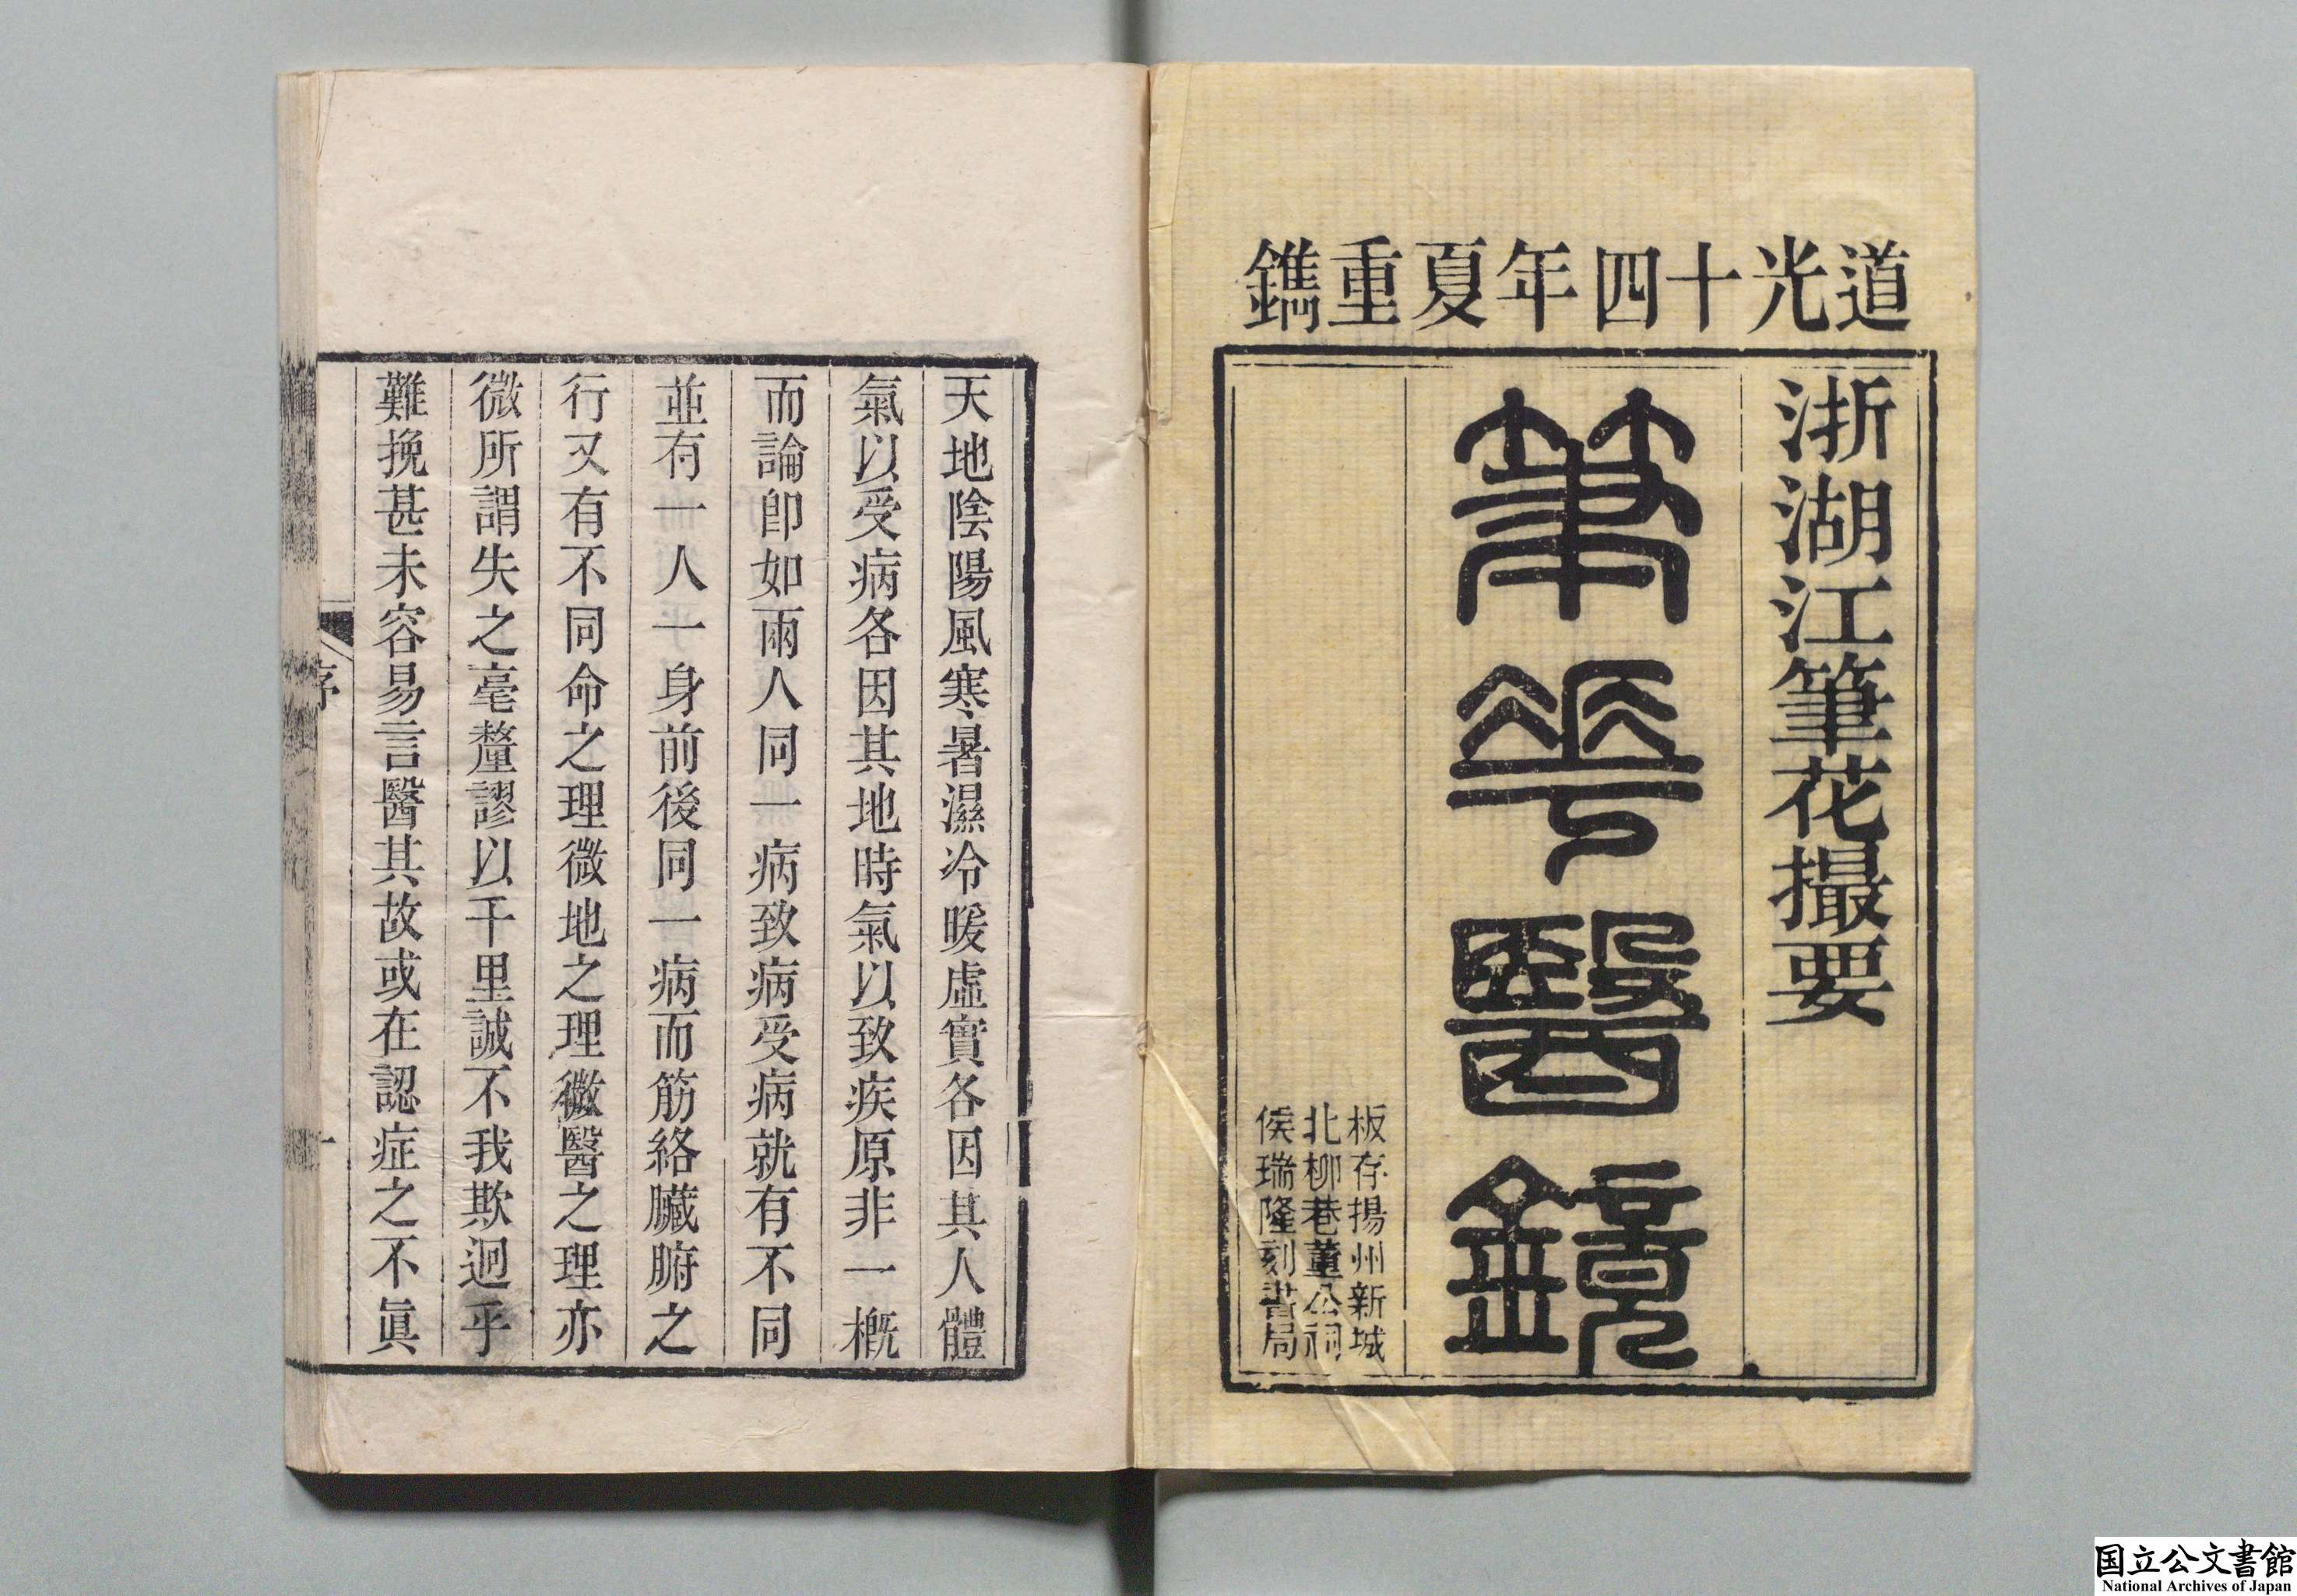 道光十四年夏重鐫
浙湖江筆花撮要
筆花醫鏡
板存揚州新城
北柳巷董公祠
侯瑞隆刻書局
天地陰陽風寒暑濕冷暖虛實各因其人體
氣以受病各因其地時氣以致疾原非一概
而論卽如兩人同一病致病受病就有不同
並有一人一身前後同一病而筋絡臟腑之
行又有不同命之理微地之理微醫之理亦
微所謂失之毫釐謬以千里誠不我欺迥乎
難挽甚未容易言醫其故或在認症之不眞
序
一
国立公文書館
National Archives of Japan